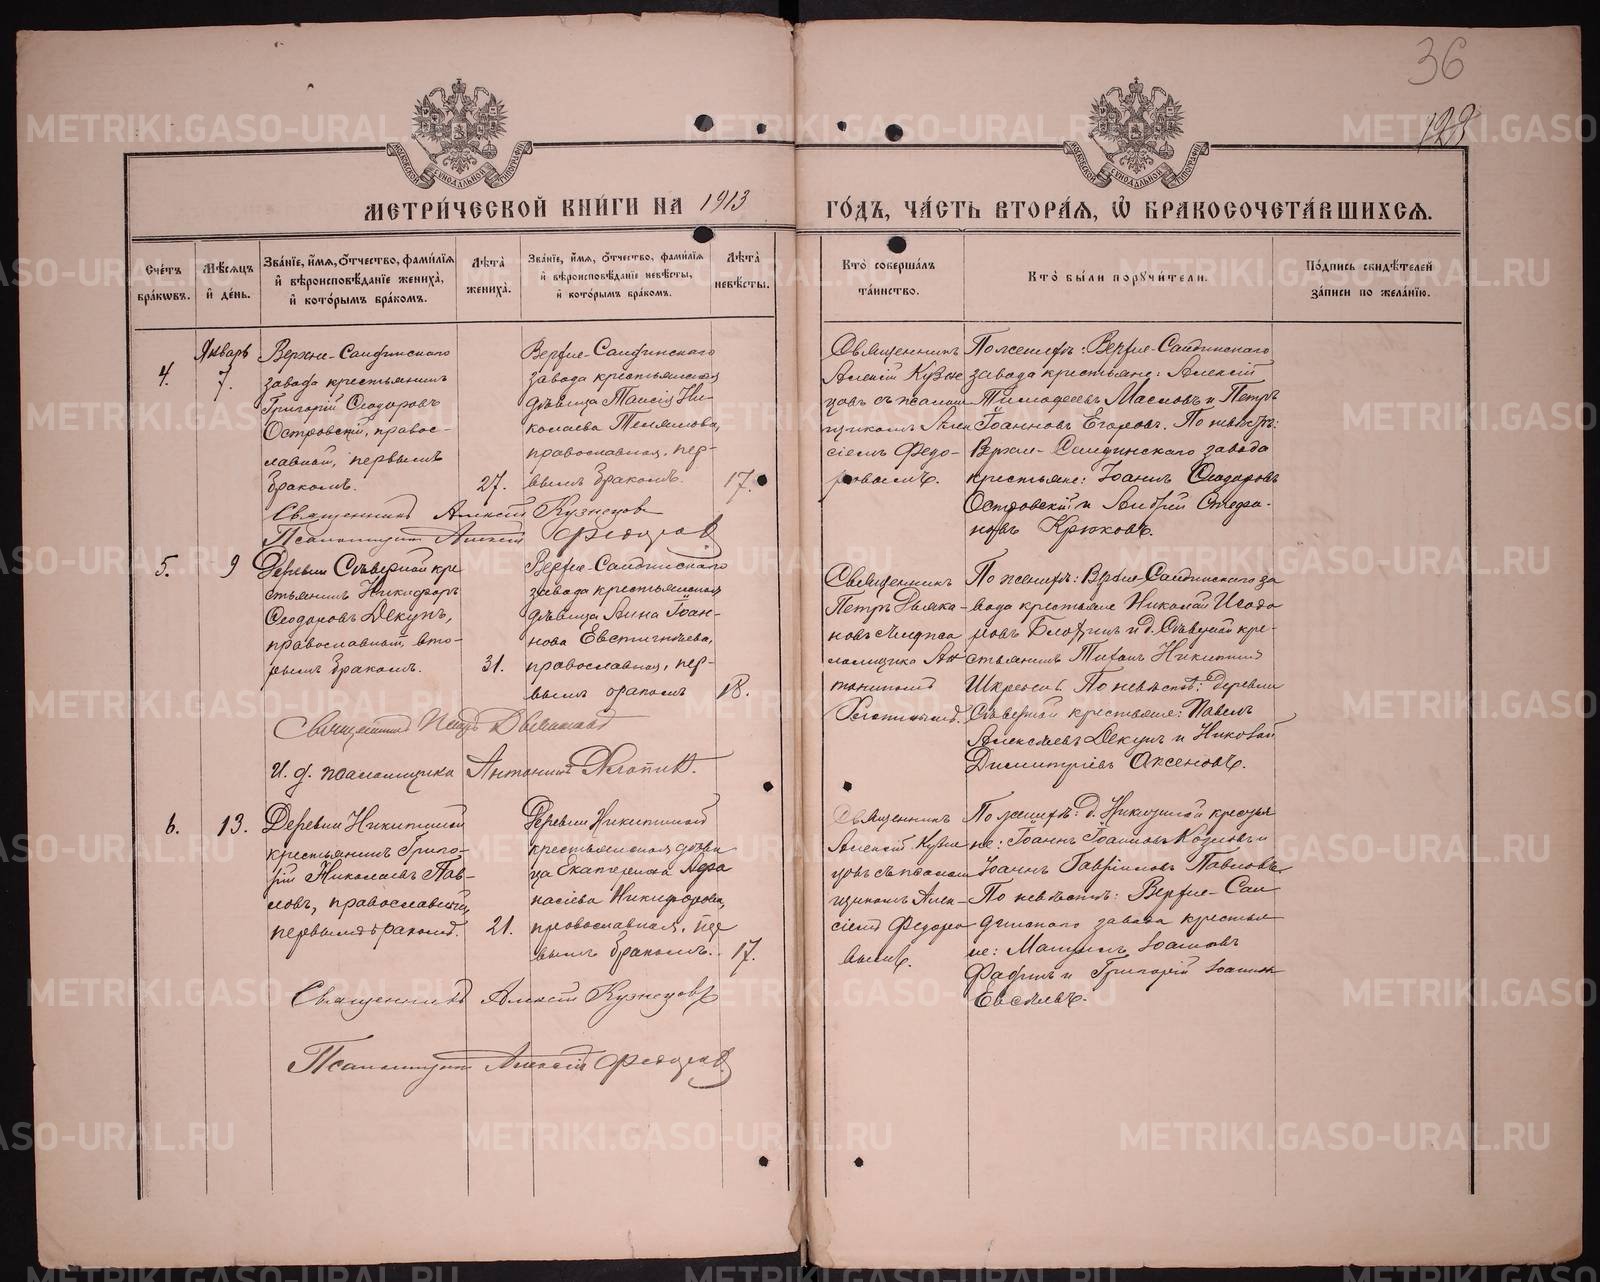 36
129
МЕТРИ́ЧЕСКОЙ КНИ́ГИ НА 1913 ГО́ДЪ, ЧА́СТЬ ВТОРА́Я, Ѡ҆ БРАКОСОЧЕТА́ВШИХСЯ.
Сче́тъ бра́кѡвъ.
Мѣ́сяцъ и҆ де́нь.
Зва́нїе, и҆́мя, ѻ҆́тчество, фами́лїя и҆ вѣроисповѣ́данїе жениха̀, и҆ кото́рымъ бра́комъ.
Лѣ́та жениха̀.
Зва́нїе, и҆́мя, ѻ҆́тчество, фами́лїя и҆ вѣроисповѣ́данїе невѣ́сты, и҆ кото́рымъ бра́комъ.
Лѣ́та невѣ́сты.
Кто̀ соверша́лъ та́инство.
Кто̀ бы́ли порꙋчи́тели.
По́дпись свидѣ́телей за́писи по жела́нїю.
4.
Январь
7.
Верхне-Салдинскаго
завода крестьянинъ
Григорій Ѳеодоровъ
Островскій, правос-
лавный, первымъ
бракомъ.
27.
Верхне-Салдинскаго
завода крестьянская
дѣвица Таисія Ни-
колаева
православная, пер-
вымъ бракомъ.
17.
Священникъ
Алексій Кузне
цовъ съ псалом
щикомъ Алек
сіемъ Федо-
ровымъ.
По женихѣ: Верхне-Салдинскаго
завода крестьяне: Алексій
Тимофеевъ Масловъ и Петръ
Іоанновъ Егоровъ. По невѣстѣ:
Верхне-Салдинскаго завода
крестьяне: Іоаннъ Ѳеодоровъ
Островскій и Андрей Стефа-
новъ Крюковъ.
Священникъ Алексій Кузнецовъ
Псаломщикъ Алексій Федоровъ
5.
9
Деревни Сѣверной кре
стьянинъ Никифоръ
Ѳеодоровъ Декунъ,
православный, вто-
рымъ бракомъ.
31.
Верхне-Салдинскаго
завода крестьянская
дѣвица Анна Іоан-
нова Евстигнѣева,
православная, пер-
вымъ бракомъ
18.
Священникъ
Петръ
новъ
ломщика Ан
тониномъ
По женихѣ: Верхне-Салдинскаго за
вода крестьяне Николай
новъ и д. Сѣверной кре-
стьянинъ Титъ Никитинъ
По невѣстѣ: деревни
Сѣверной крестьяне: Павелъ
Алексѣевъ Декунъ и Николай
Димитріевъ Аксеновъ.
Священникъ Петръ
И. д. псаломщика Антонинъ
6.
13.
Деревни Никитиной
крестьянинъ Григо-
рій Николаевъ Пав-
ловъ, православный,
первымъ бракомъ.
21.
Деревни Никитиной
крестьянская дѣви
ца Екатерина Афа
насіева Никифорова,
православная, пер
вымъ бракомъ.
17.
Священникъ
Алексій Кузне
цовъ съ псалом
щикомъ Алек-
сіемъ Федоро
вымъ.
По женихѣ: д. Никитиной крестья
не: Іоаннъ Іоанновъ Козловъ и
Іоаннъ Гавріиловъ Павловъ.
По невѣстѣ: Верхне-Сал
динскаго завода крестья
не: Іоанновъ
и Григорій Іоанновъ
Евсѣевъ.
Священникъ Алексій Кузнецовъ
Псаломщикъ Алексій Федоровъ
METRIKI.GASO-URAL.RU